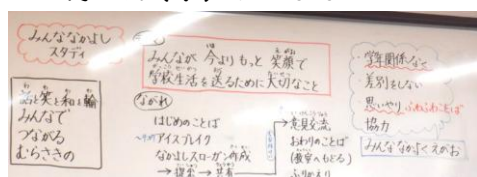 みんななかよし
スタディ
話と笑と和と輪
みんなで
つながる
むらさきの
みんなが 今よりもっと 笑顔で
学校生活を送るために大切なこと
ながれ
はじめのことば
アイスブレイク
なかよしスローガン作成
→提案→共有
→意見交流
おわりのことば
(教室へもどる)
ふりかえり
学年関係なく
差別をしない
思いやり ふわふわことば
協力
みんななかよくえがお